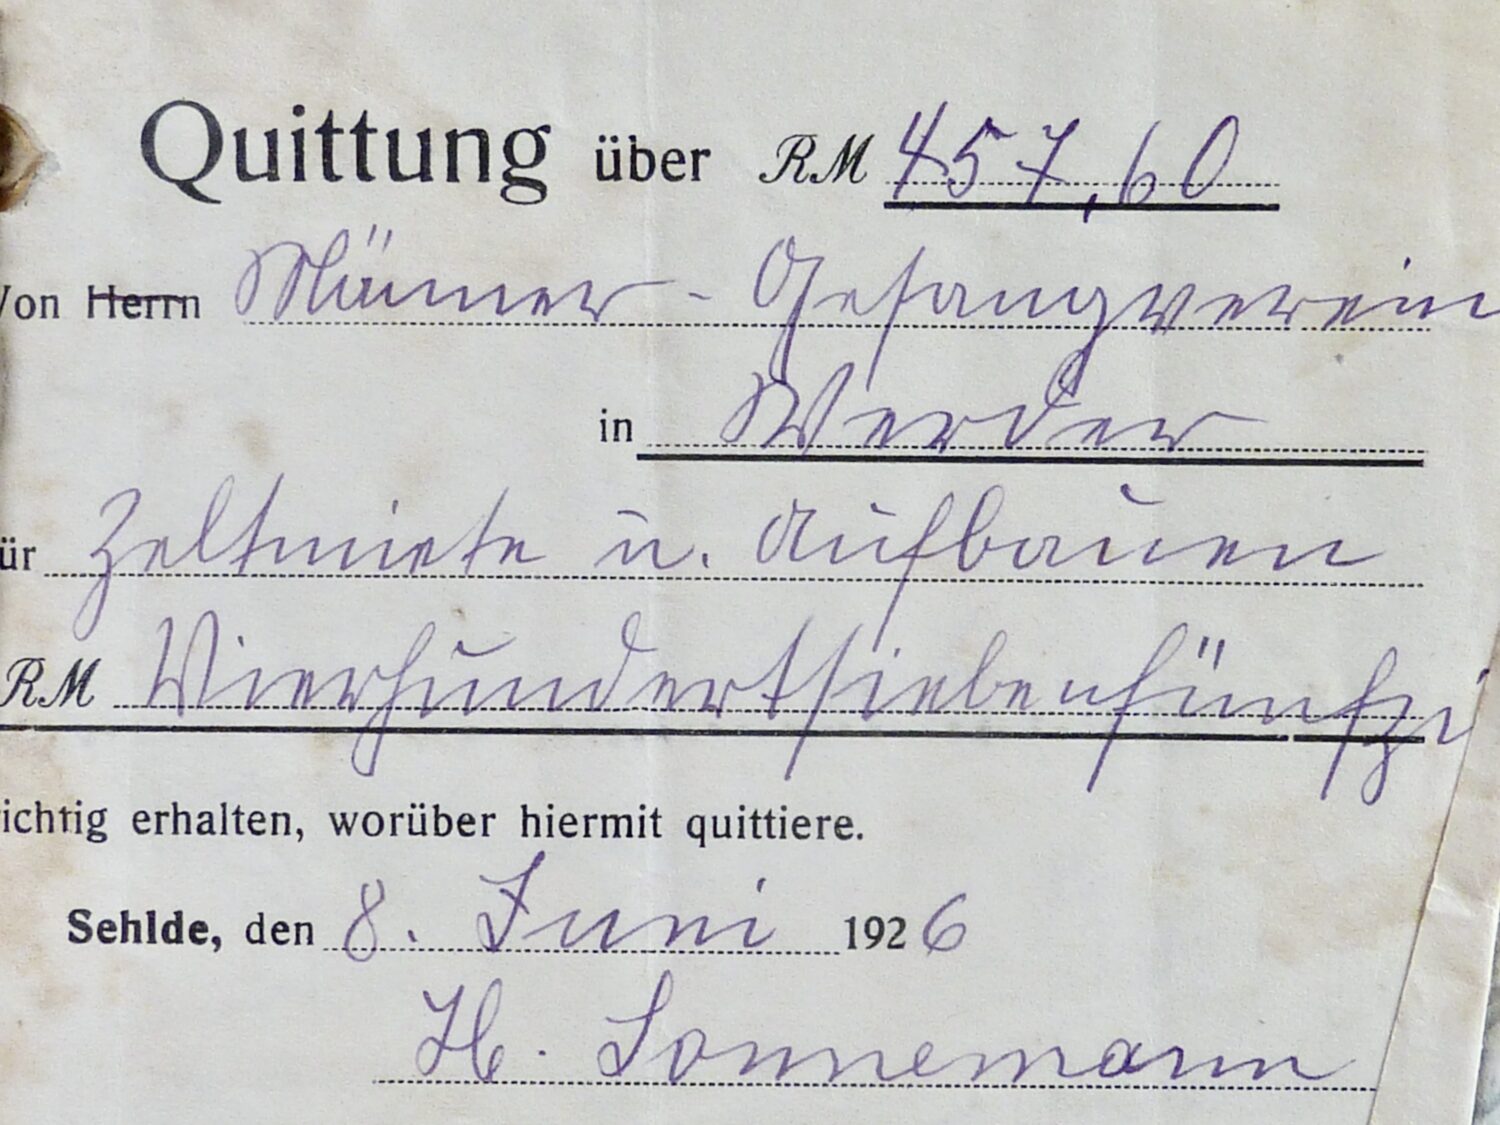 Quittung über RM 457,60
Von Herrn Männer-Gesangverein
in Werder
ür Zeltmiete u. Aufbauen
RM Vierhundertsiebenfünfzi
ichtig erhalten, worüber hiermit quittiere.
Sehlde, den 8. Juni 1926
H. Sonnemann